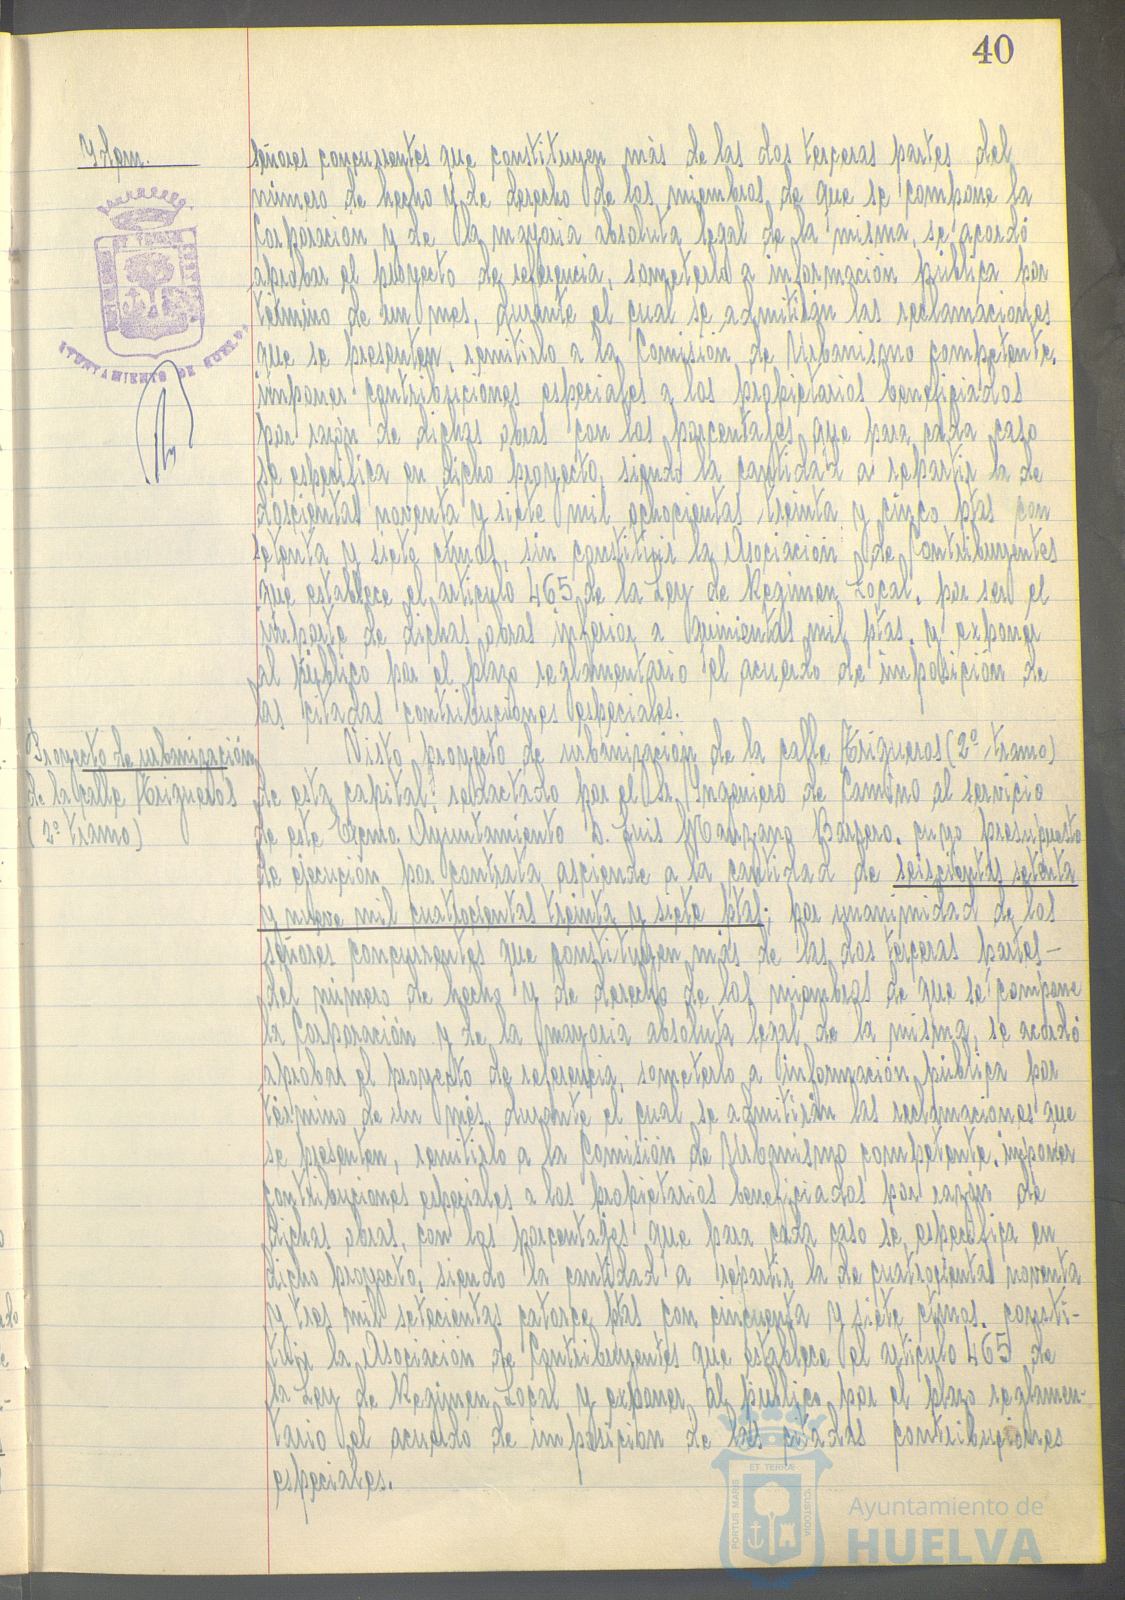 40
Ydem.
señores concurrentes que constituyen más de las dos terceras partes del
número de hecho y de derecho de los miembros de que se compone la
Corporación y de la mayoria absoluta legal de la misma, se acordó
aprobar el proyecto de referencia, someterlo a información pública por
término de un mes, durante el cual se admitirán las reclamaciones
que se presenten, remitirlo a la Comisión de Urbanismo competente,
imponer contribuciones especiales a los propietarios beneficiados
por razón de dichas obras con los porcentajes que para cada caso
se especifica en dicho proyecto, siendo la cantidad a repartir la de
doscientas noventa y siete mil ochocientas treinta y cinco ptas con
setenta y siete ctmos, sin constituir la Asociación de Contribuyentes
que establece el articulo 465 de la Ley de Regimen Local, por ser el
importe de dichas obras inferior a quinientas mil ptas. y exponer
al público por el plazo reglamentario el acuerdo de imposición de
las citadas contribuciones especiales.
Proyecto de urbanización
de la calle Trigueros
(2º tramo)
Visto proyecto de urbanización de la calle Trigueros (2º tramo)
de esta capital, redactado por el Sr. Ingeniero de Camino al servicio
de este Excmo. Ayuntamiento D. Luis Manzano Barrero, cuyo presupuesto
de ejecución por contrata asciende a la cantidad de seiscientas setenta
y nueve mil cuatrocientas treinta y siete ptas; por unanimidad de los
señores concurrentes que constituyen más de las dos terceras partes-
del número de hecho y de derecho de los miembros de que se compone
la Corporación y de la mayoria absoluta legal de la misma, se acordó
aprobar el proyecto de referencia, someterlo a información pública por
término de un mes, durante el cual se admitirán las reclamaciones que
se presenten, remitirlo a la Comisión de Urbanismo competente, imponer
contribuciones especiales a los propietarios beneficiados por razón de
dichas obras, con los porcentajes que para cada caso se especifica en
dicho proyecto, siendo la cantidad a repartir la de cuatrocientas noventa
y tres mil setecientas catorce ptas con cincuenta y siete ctmos. consti-
tuir la Asociación de Contribuyentes que establece el articulo 465 de
la Ley de Regimen Local y exponer al publico por el plazo reglamen-
tario el acuerdo de imposicion de las citadas contribuciones
especiales.
AYUNTAMIENTO DE HUELVA
PORTUS MARIS ET TERRÆ CUSTODIA
Ayuntamiento de
HUELVA